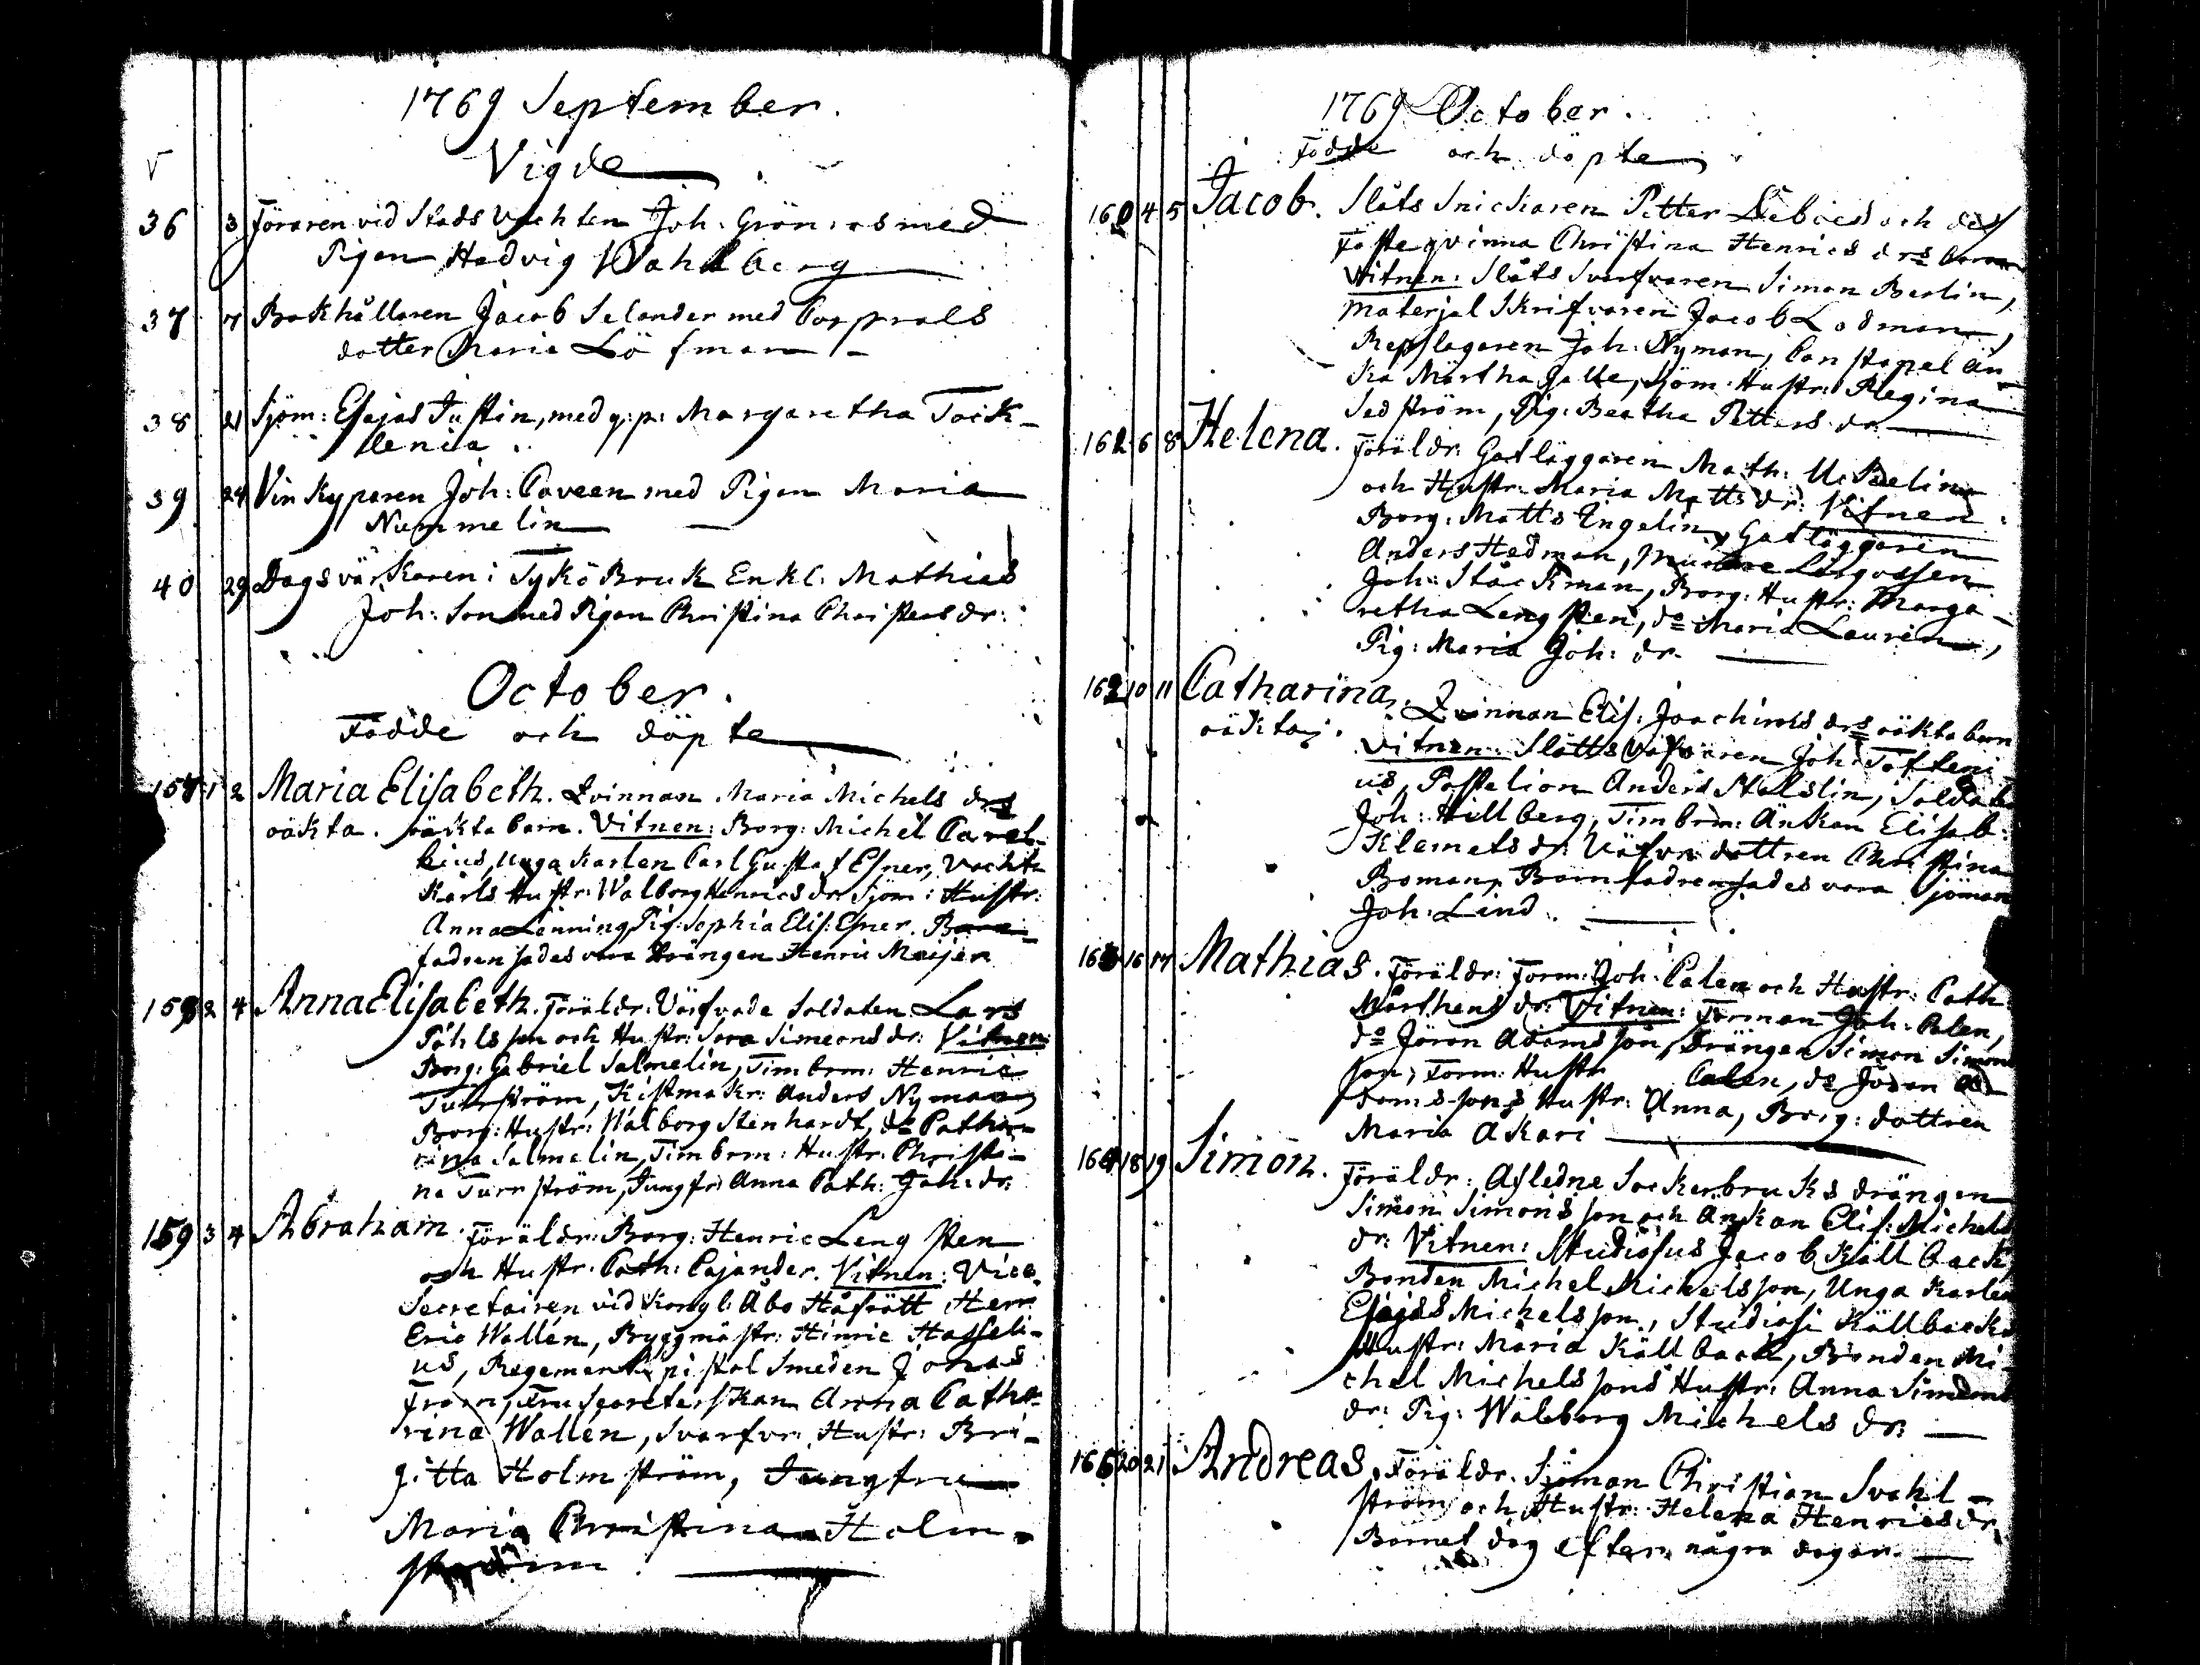 1769 September.
Vigde
36 3 Föraren vid Stads Vachten Joh: Grönroos med
Pigan Hedvig Wahlberg
37 7 Bokhållaren Jacob Selander med Corprals
dotter Maria Löfman
38 21 Sjöm: Esajas Justin, med q: p: Margaretha Tack-
lenia
39 24 Vin Kyparen Joh: Caveen med Pigan Maria
Nummelin
40 29 Dagsvärkaren i Tykö Bruk Enkl: Mathias
Joh: Son med Pigan Christina Christers dr:
October.
Födde och döpte
157 1 2 Maria Elisabeth. Qvinnan Maria Michels drs
oäkta. oäkta barn. Vitnen: Borg: Michel Carel-
bius, Unga Karlen Carl Gustaf Esner, Vacht
Karls Hustr: Walborg Henrics dr Sjöm: Hustr:
Anna Lönning Pig: Sophia Elis: Esner. Barn-
fadren sades vara Drängen Henric Meijer
158 2 4 Anna Elisabeth. Föräldr: Värfvade Soldaten Lars
Påhls son och Hustr: Sara Simeons dr: Vitnen:
Borg: Gabriel Salmelin, Timbrm: Henric
Turrström, Kistmakr: Anders Nyman,
Borg: Hustr: Walborg Stenhardt, do Catha-
rina Salmelin, Timbrm: Hustr: Christi-
na Turrström, Jungfr: Anna Cath: Joh: dr:
159 3 4 Abraham. Föräldr: Borg: Henric Lengsten
och Hustr: Cath: Cajander. Vitnen: Vice
Secretairen vid Kongl: Åbo Håfrätt Herr
Eric Wallén, Byggmästr: Hinric Hasseli-
us, Regements pistol Smeden Jonas
From, Fru Secreterskan Anna Catha-
rina Wallén, Svarfvr: Hustr: Bri-
gitta Holmström, Jungfru
Maria Christina Holm-
ström
1769 October.
Födde och döpte
160 4 5 Jacob. Slåts Snickaren Petter Leboed och des
Fästeqvinna Christina Henrics drs barn
Vitnen: Slåts Svarfvaren Simon Berlin,
Materjal Skrifvaren Jacob Lodman,
Repslagaren Joh: Nyman, Constapel Än-
ka Märtha Galle, Sjöm: Hustr: Regina
Sedström, Pig: Beatha Petters dr
161 6 8 Helena. Föräldr: Gatläggaren Math: Udelin
och Hustr: Maria Matts dr: Vitnen
Borg: Matts Engelin, Gatläggaren
Anders Hedman,
Joh: Stâckman, Borg: Hustr: Marga-
retha Lengsten, do Maria Laurén,
Pig: Maria Joh: dr
162 10 11 Catharina. Qvinnan Elis: Joachims drs oäkta barn
oäkta. Vitnen: Slåtts Joh: Tofteni-
us, Postelion Anders Stelslin, Soldaten
Joh: Hillberg, Timbrm: Änkan Elisab:
Klemets dr: Väfvr: dottren Christina
Boman. Barnfadren sades vara Sjöman
Joh: Lind
163 16 17 Mathias. Föräldr: Form: Joh: Calen och Hustr: Cath:
Mårthens dr: Vitnen: Forman Joh: Calen,
do Jöran Adamsson, Drängen Simon Simons
son, Form: Hustr Calen, do Jöran A-
damssons Hustr: Anna, Borg: dottren
Maria Akari
164 18 19 Simon. Föräldr: Afledne Sockerbruks drängen
Simon Simons son och Änkan Elis: Michels
dr: Vitnen: Studiosus Jacob Källback,
Bonden Michel Michelsson, Unga Karlen
Esajas Michelsson, Studiosi Källbacks
Hustr: Maria Källback, Bonden Mi-
chel Michelssons Hustr: Anna Simons
dr: Pig: Walborg Michels dr:
165 20 21 Andreas. Föräldr: Sjöman Christian Svahl-
ström och Hustr: Helena Henrics dr,
Barnet dog efter några dagar.